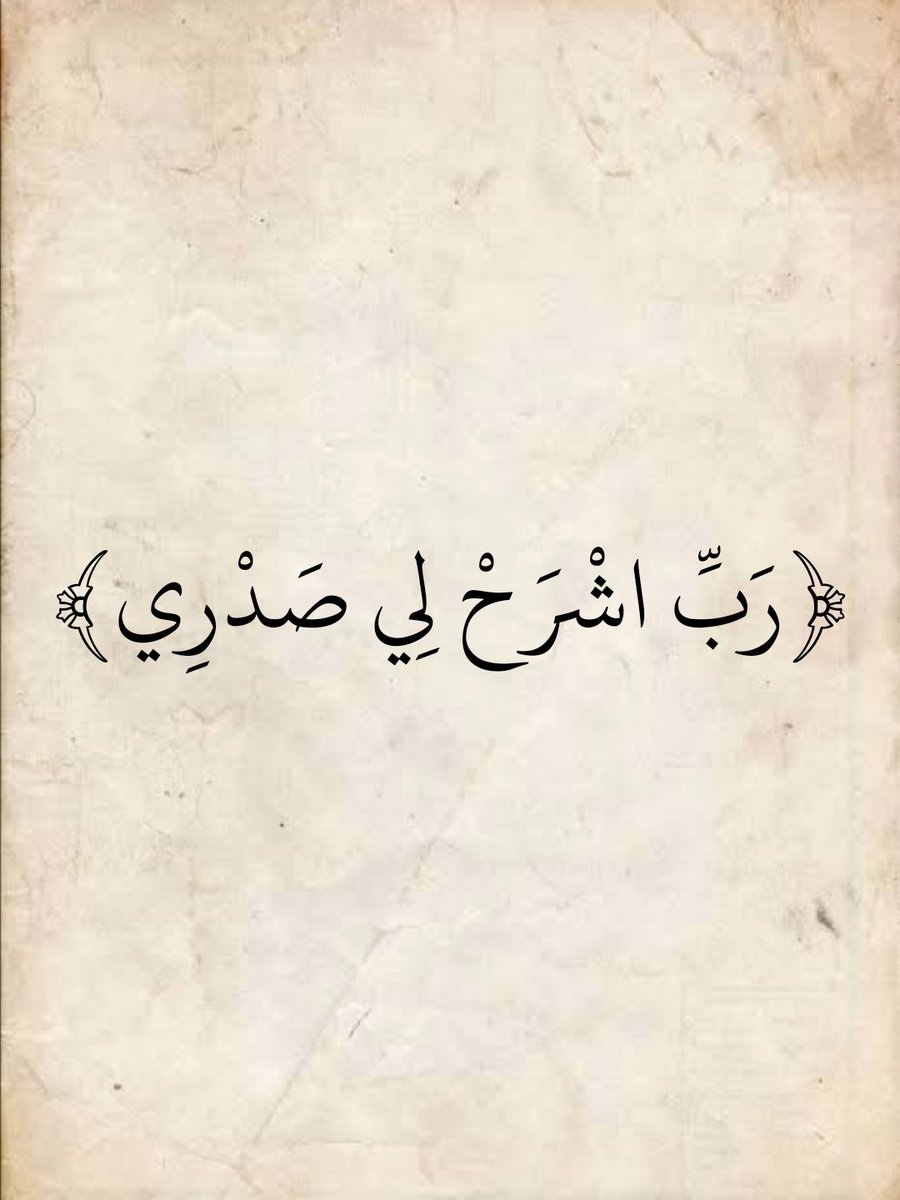 ﴿رَبِّ اشْرَحْ لِي صَدْرِي﴾